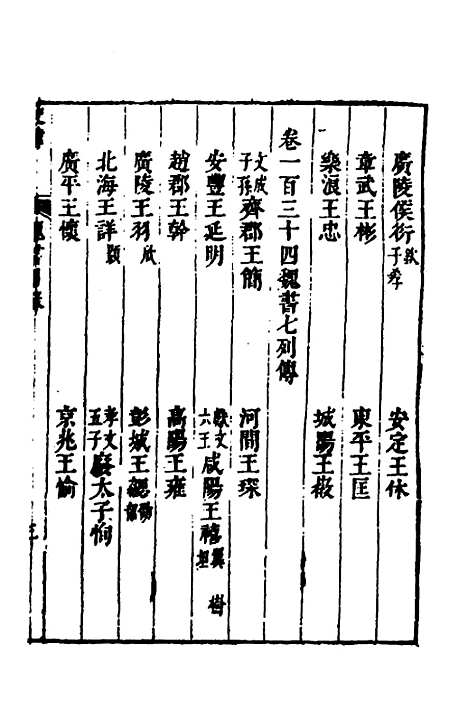 廣陵侯衍 欽 子孝 安定王休
章武王彬 東平王匡
樂浪王忠 城陽王
卷一百三十四魏書七列傳
文成子孫 齊郡王簡 河間王琛
安豐王延明 獻文六王 咸陽王禧 翼 樹 坦
趙郡王幹 高陽王雍
廣陵王羽 欣 彭城王勰 劭
北海王詳 顥 孝文五子 廢太子恂
廣平王懷 京兆王愉
三